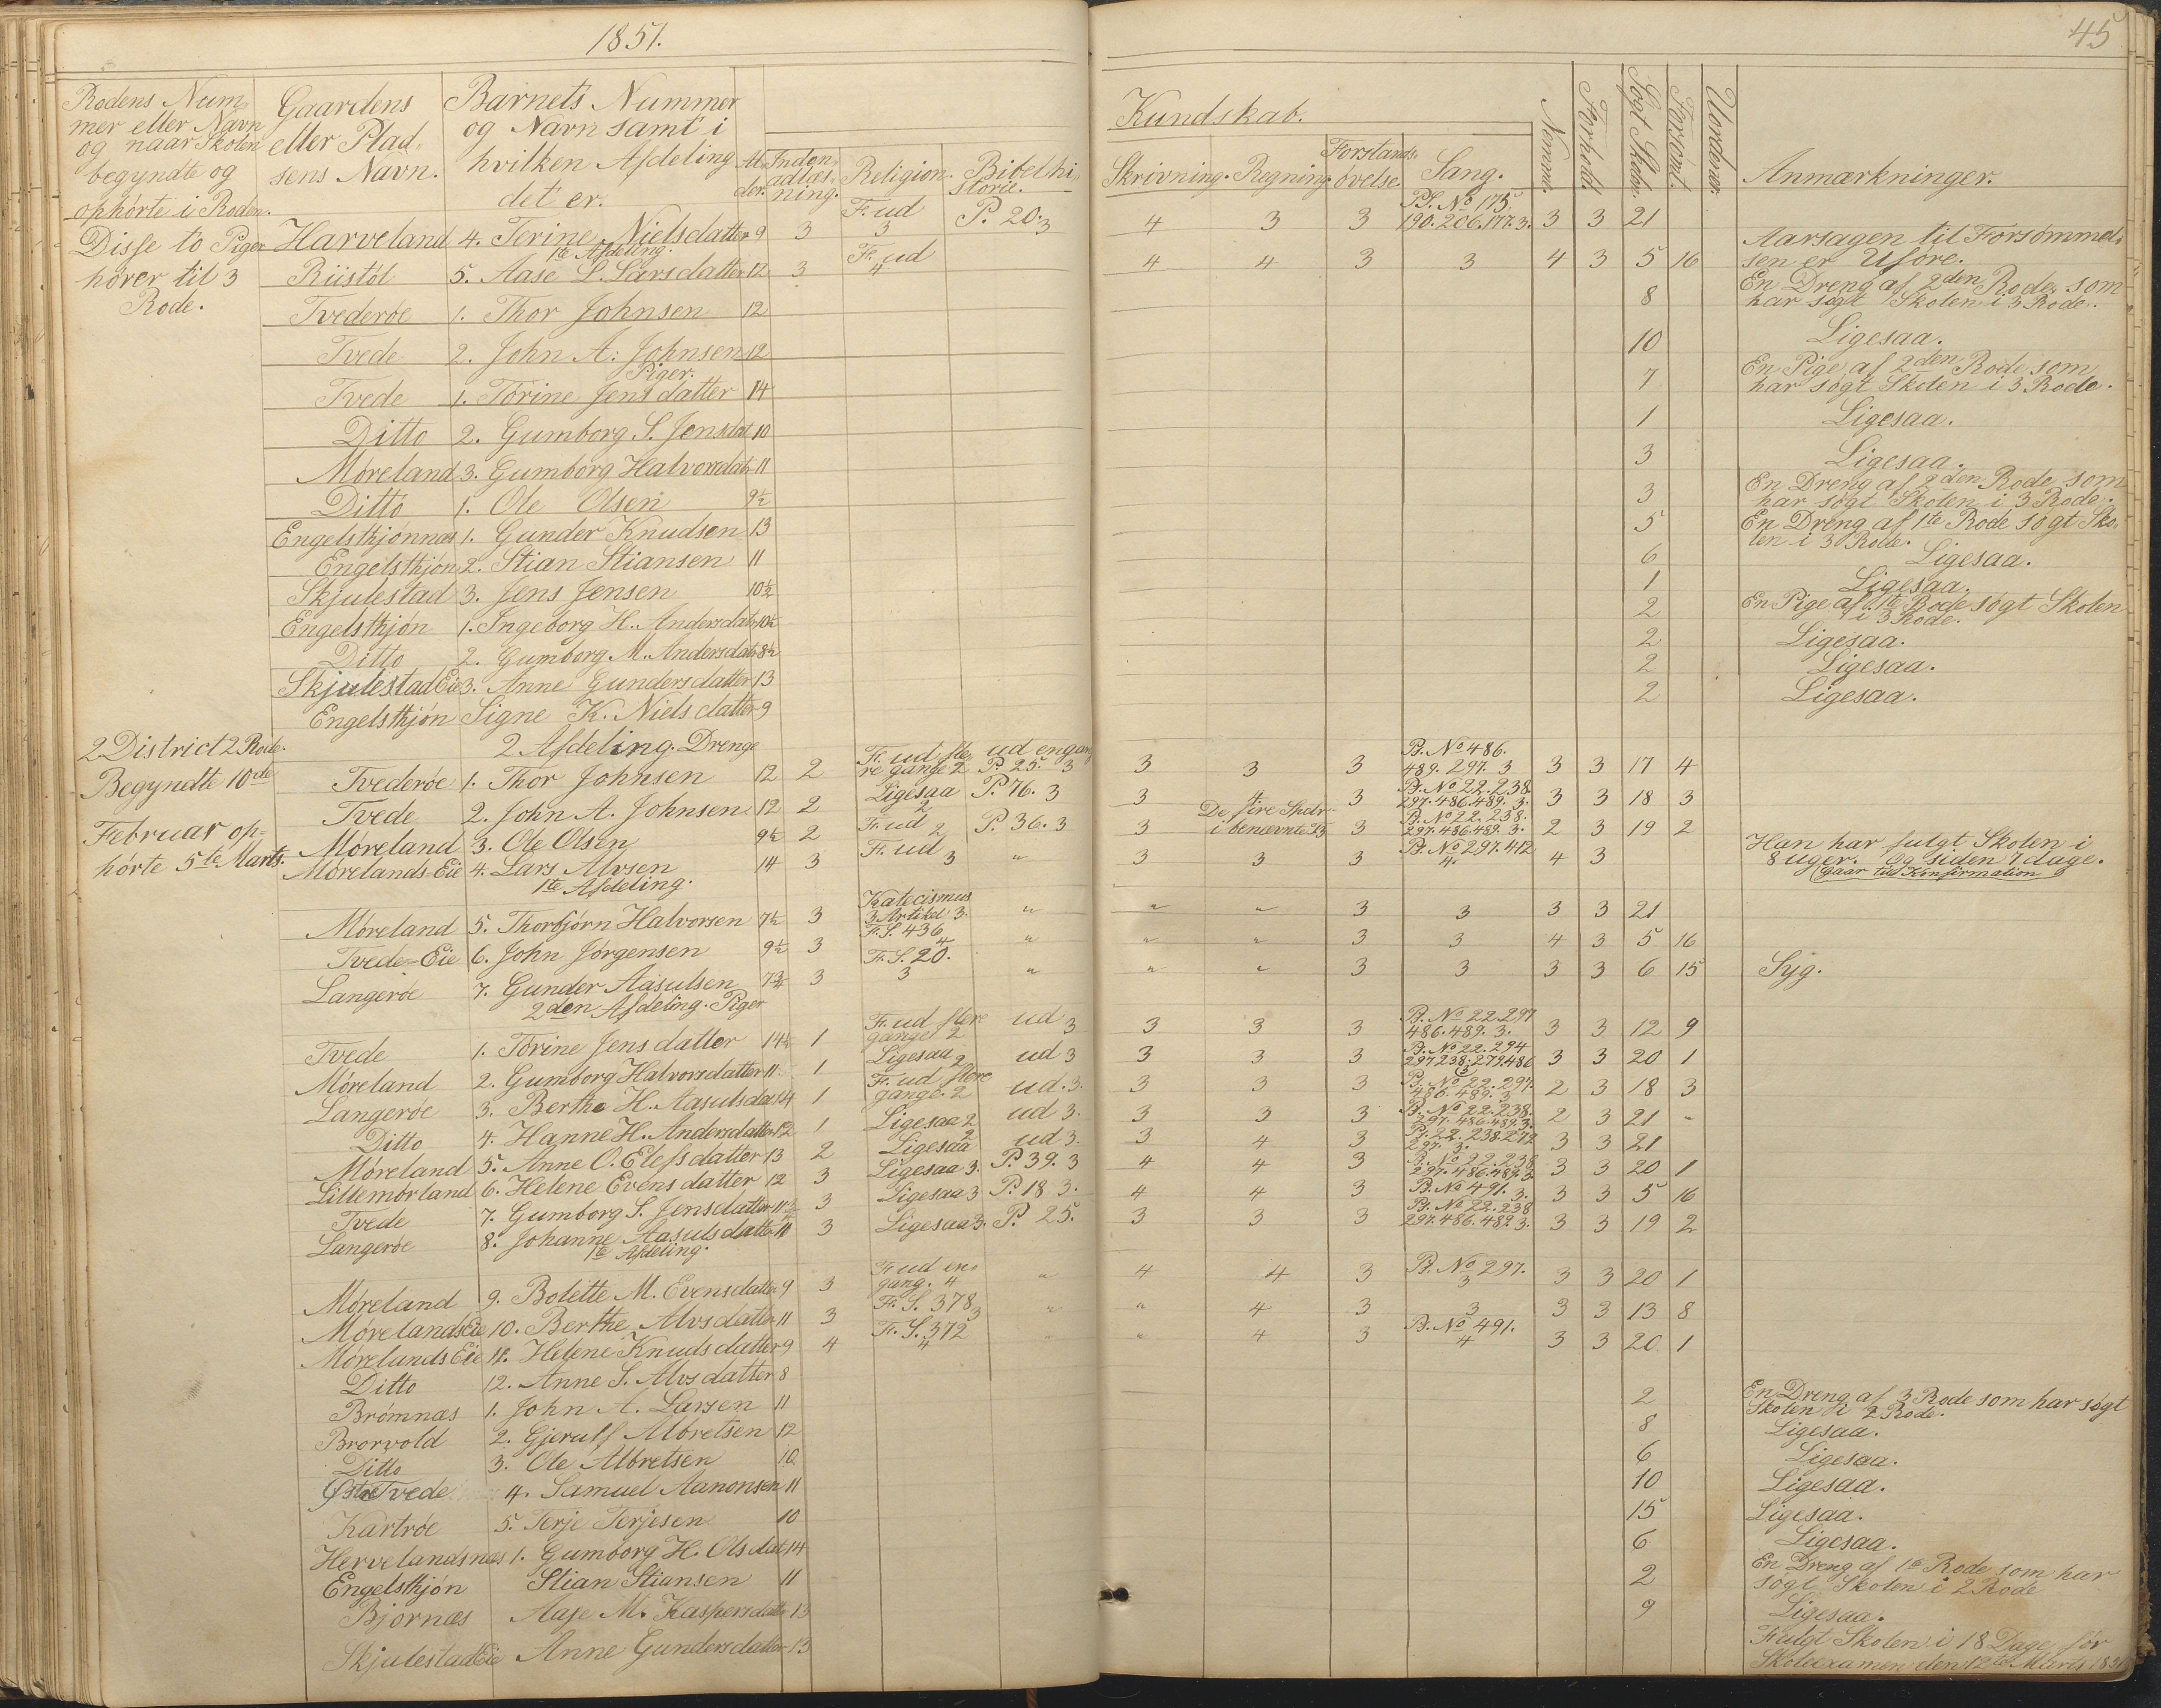 1851.
45
Rodens Num-
mer eller Navn
og naar Skolen
begyndte og
ophørte i Roden.
Gaardens
eller Plad-
sens Navn.
Barnets Nummer
og Navn samt i
hvilken Afdeling
det er.
Al-
der.
Inden-
adlæs-
ning.
Religion.
Bibelhi-
storie.
Kundskab.
Skrivning. Regning. Forstands-
øvelse. Sang.
Nemme.
Forhold.
Søgt Skolen.
Forsømt.
Uordener.
Anmærkninger.
Disse to Piger
hører til 3
Rode.
Harveland 4. Terine Nielsdatter 9 3 F. ud 3 P. 20. 3 4 3 3 Ps. No 175. 190. 206. 177. 3. 3 3 21
1te Afdeling.
Riistøl 5. Aase L. Larsdatter 12 3 F. ud 4 4 4 3 3 4 3 5 16 Aarsagen til Forsømmel-
sen er Uføre.
Tvederøe 1. Thor Johnsen 12 8 En Dreng af 2den Rode som
har søgt Skolen i 3 Rode.
Tvede 2. John A. Johnsen 12 10 Ligesaa.
Piger.
Tvede 1. Torine Jensdatter 14 7 En Pige af 2den Rode som
har søgt Skolen i 3 Rode.
Ditto 2. Gumborg S. Jensdat 10 1 Ligesaa.
Møreland 3. Gumborg Halvorsdat 11 3 Ligesaa.
Ditto 1. Ole Olsen 9½ 3 En Dreng af 2den Rode som
har søgt Skolen i 3 Rode.
Engelsthjønnæs 1. Gunder Knudsen 13 5 En Dreng af 1te Rode søgt Sko-
len i 3 Rode.
Engelsthjøn 2. Stian Stiansen 11 6 Ligesaa.
Skjulestad 3. Jens Jensen 10½ 1 Ligesaa.
Engelsthjøn 1. Ingeborg H. Andersdat 10½ 2 En Pige af 1te Rode søgt Skolen
i 3 Rode.
Ditto 2. Gumborg M. Andersdat 8½ 2 Ligesaa.
Skjulestad Eie 3. Anne Gundersdatter 13 2 Ligesaa.
Engelsthjøn Signe K. Nielsdatter 9 2 Ligesaa.
2 District 2 Rode.
Begyndte 10de
Februar op-
hørte 5te Marts.
2 Afdeling. Drenge
Tvederøe 1. Thor Johnsen 12 2 Fr. ud fle-
re gange 2 ud engang
P. 25. 3 3 3 3 Ps. No 486.
489. 297. 3 3 3 17 4
Tvede 2. John A. Johnsen 12 2 Ligesaa 2 P. 76. 3 3 4 3 Ps. No 22. 238.
297. 486. 489. 3. 3 3 18 3
Møreland 3. Ole Olsen 9½ 2 Fr. ud 2 P. 36. 3 3 De fire
i benævnte 3 Ps. No 22. 238.
297. 486. 489. 3. 2 3 19 2
Mørelands-Eie 4. Lars Alvsen 14 3 Fr. ud 3 " 3 3 3 Ps. No 297. 412
4. 4 3 Han har fulgt Skolen i
8 uger. Og siden 7 dage.
Gaar til Konfirmation
1te Afdeling.
Møreland 5. Thorbjørn Halvorsen 7½ 3 Katecismus
3 Artikel 3. " " " 3 3 3 3 21
Tvede-Eie 6. John Jørgensen 9½ 3 Fr. S. 436
4 " " " 3 3 4 3 5 16
Langerøe 7. Gunder Aasulsen 7¾ 3 Fr. S. 20.
3 " " " 3 3 3 3 6 15 Syg.
2den Afdeling. Piger
Tvede 1. Torine Jensdatter 14½ 1 Fr. ud flere
gange 2 ud 3 3 3 3 Ps. No 22. 297
486. 489. 3. 3 3 12 9
Møreland 2. Gumborg Halvorsdatter 11 1 Ligesaa 2 ud 3 3 3 3 Ps. No 22. 294
297. 238. 279. 486
3 3 3 20 1
Langerøe 3. Berthe H. Aasulsdat 14 1 Fr. ud flere
gange. 2 ud. 3. 3 3 3 Ps. No 22. 297.
486. 489. 3 2 3 18 3
Ditto 4. Hanne H. Andersdatter 12 1 Ligesaa 2 ud 3. 3 3 3 Ps. No 22. 238.
297. 486. 489. 3. 2 3 21 -
Møreland 5. Anne O. Elefsdatter 13 2 Ligesaa 2 ud 3. 3 4 3 Ps. 22. 238. 279
297. 3. 3 3 21
Lillemørland 6. Helene Evensdatter 12 3 Ligesaa 3. P. 39. 3 4 4 3 Ps. No 22. 238
297. 486. 489. 3. 3 3 20 1
Tvede 7. Gumborg S. Jensdatter 11 3 Ligesaa 3 P. 18 3. 4 4 3 Ps. No 491. 3. 3 3 5 16
Langerøe 8. Johanne Aasulsdatter 11 3 Ligesaa 3. P. 25. 3 3 3 Ps. No 22. 238
297. 486. 489. 3. 3 3 19 2
1te Afdeling.
Møreland 9. Bolette M. Evensdatter 9 3 Fr. ud en-
gang. 4 " 4 4 3 Ps. No 297.
3 3 3 20 1
Mørelands Eie 10. Berthe Alvsdatter 11 3 Fr. S. 378
3 " " 4 3 3 3 3 13 8
Mørelands Eie 11. Helene Knudsdatter 9 4 Fr. S. 372
4 " " 4 3 Ps. No 491.
4 3 3 20 1
Ditto 12. Anne S. Alvsdatter 8
Brømnæs 1. John A. Larsen 11 2 En Dreng af 3 Rode som har søgt
Skolen i 2 Rode.
Brorvold 2. Gjerulf Albretsen 12 8 Ligesaa.
Ditto 3. Ole Albretsen 10 6 Ligesaa.
Østre Tvede 4. Samuel Aanonsen 11 10 Ligesaa.
Kartrøe 5. Terje Terjesen 10 15 Ligesaa.
Hervelandsnæs 1. Gumborg H. Olsdat 14 6 Ligesaa.
Engelsthjøn Stian Stiansen 11 2 En Dreng af 1te Rode som har
søgt Skolen i 2 Rode
Bjornæs Aase M. Kaspersdatt 13 9 Ligesaa.
Skjulestad Eie Anne Gundersdatter 13 Fulgt Skolen i 18 Dage før
Skoleexamen den 12te Marts 1851